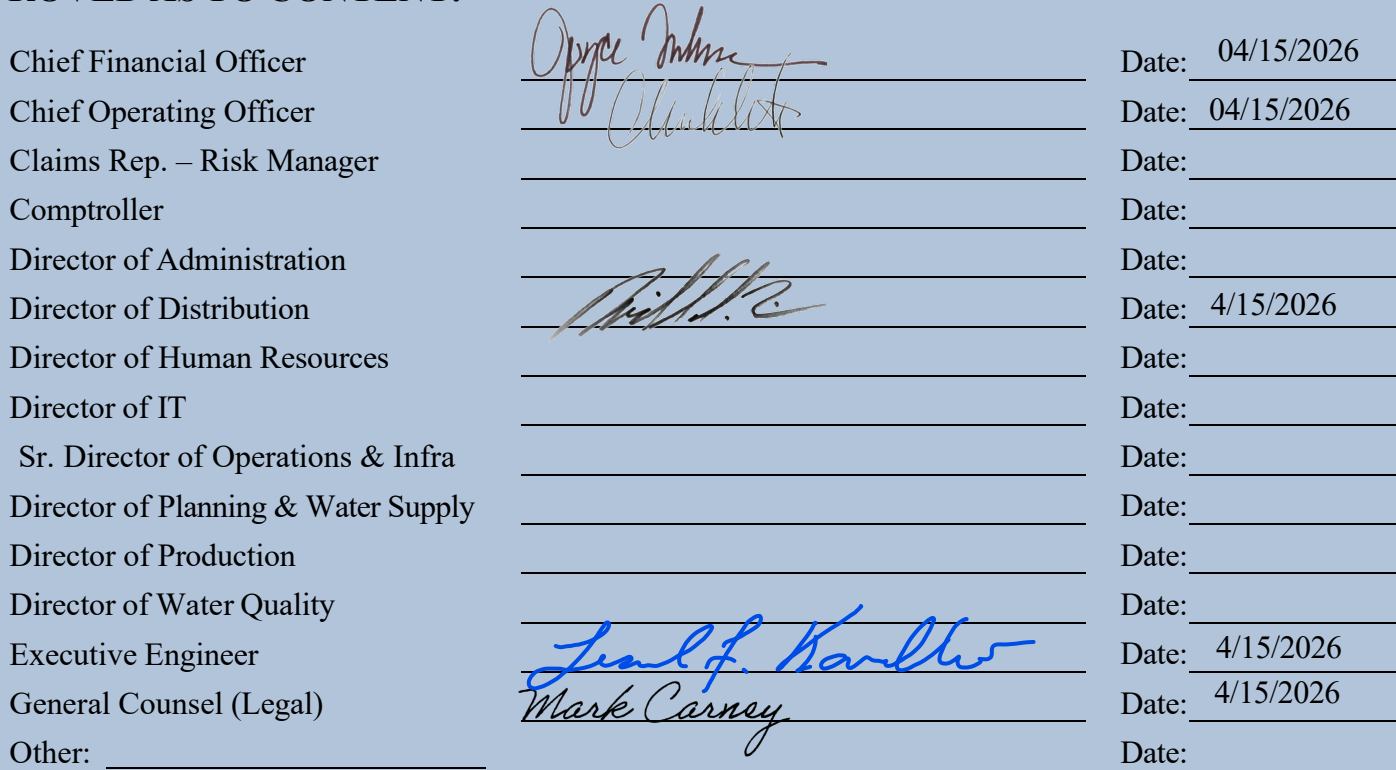 Chief Financial Officer Date: 04/15/2026
Chief Operating Officer Date: 04/15/2026
Claims Rep. – Risk Manager Date:
Comptroller Date:
Director of Administration Date:
Director of Distribution Date: 4/15/2026
Director of Human Resources Date:
Director of IT Date:
Sr. Director of Operations & Infra Date:
Director of Planning & Water Supply Date:
Director of Production Date:
Director of Water Quality Date:
Executive Engineer Date: 4/15/2026
General Counsel (Legal) Mark Carney Date: 4/15/2026
Other: Date: